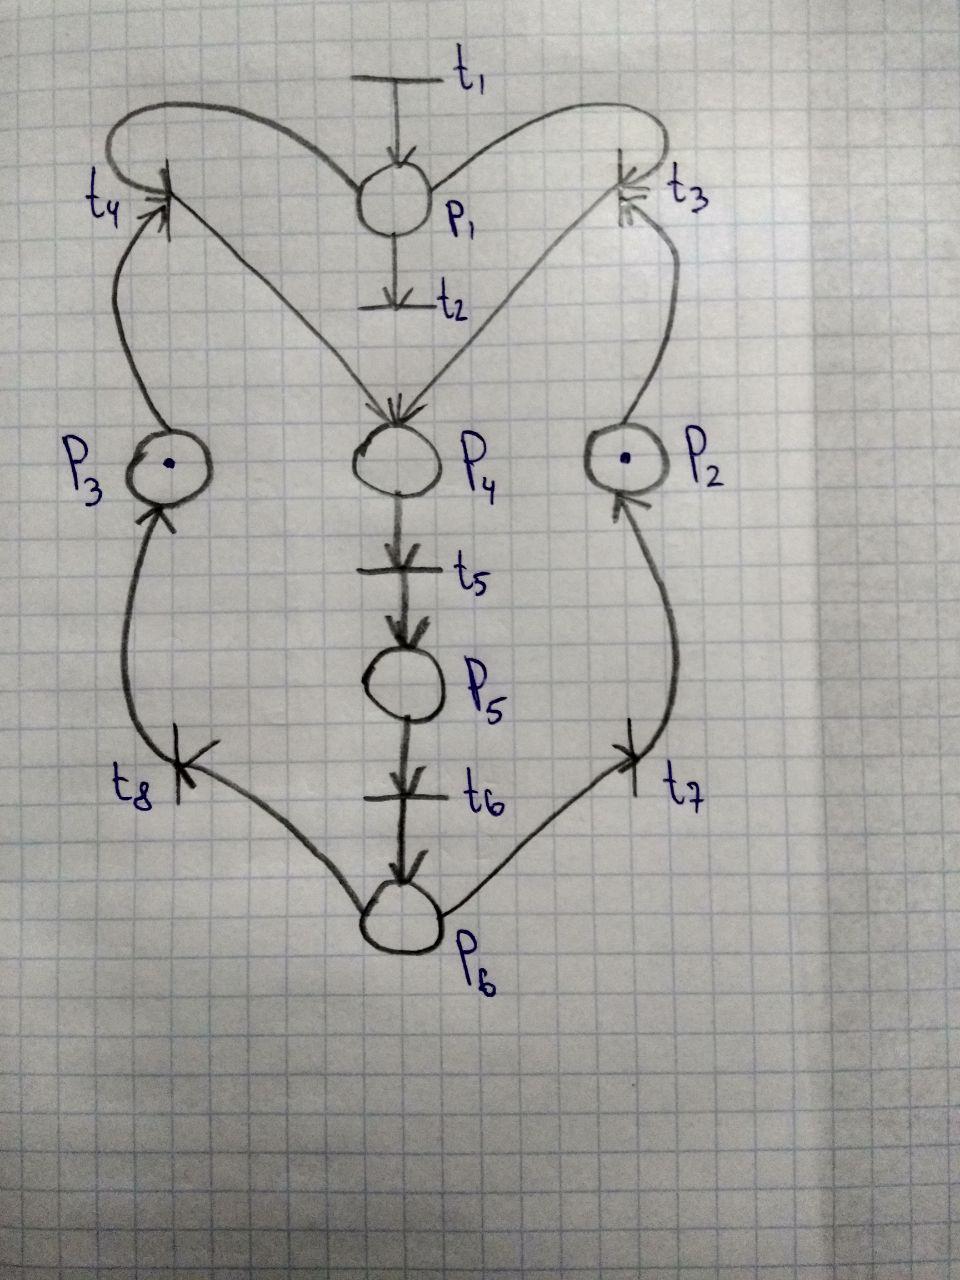 t1
t4
P1
t3
t2
P3
P4
P2
t5
P5
t8
t6
t7
P6